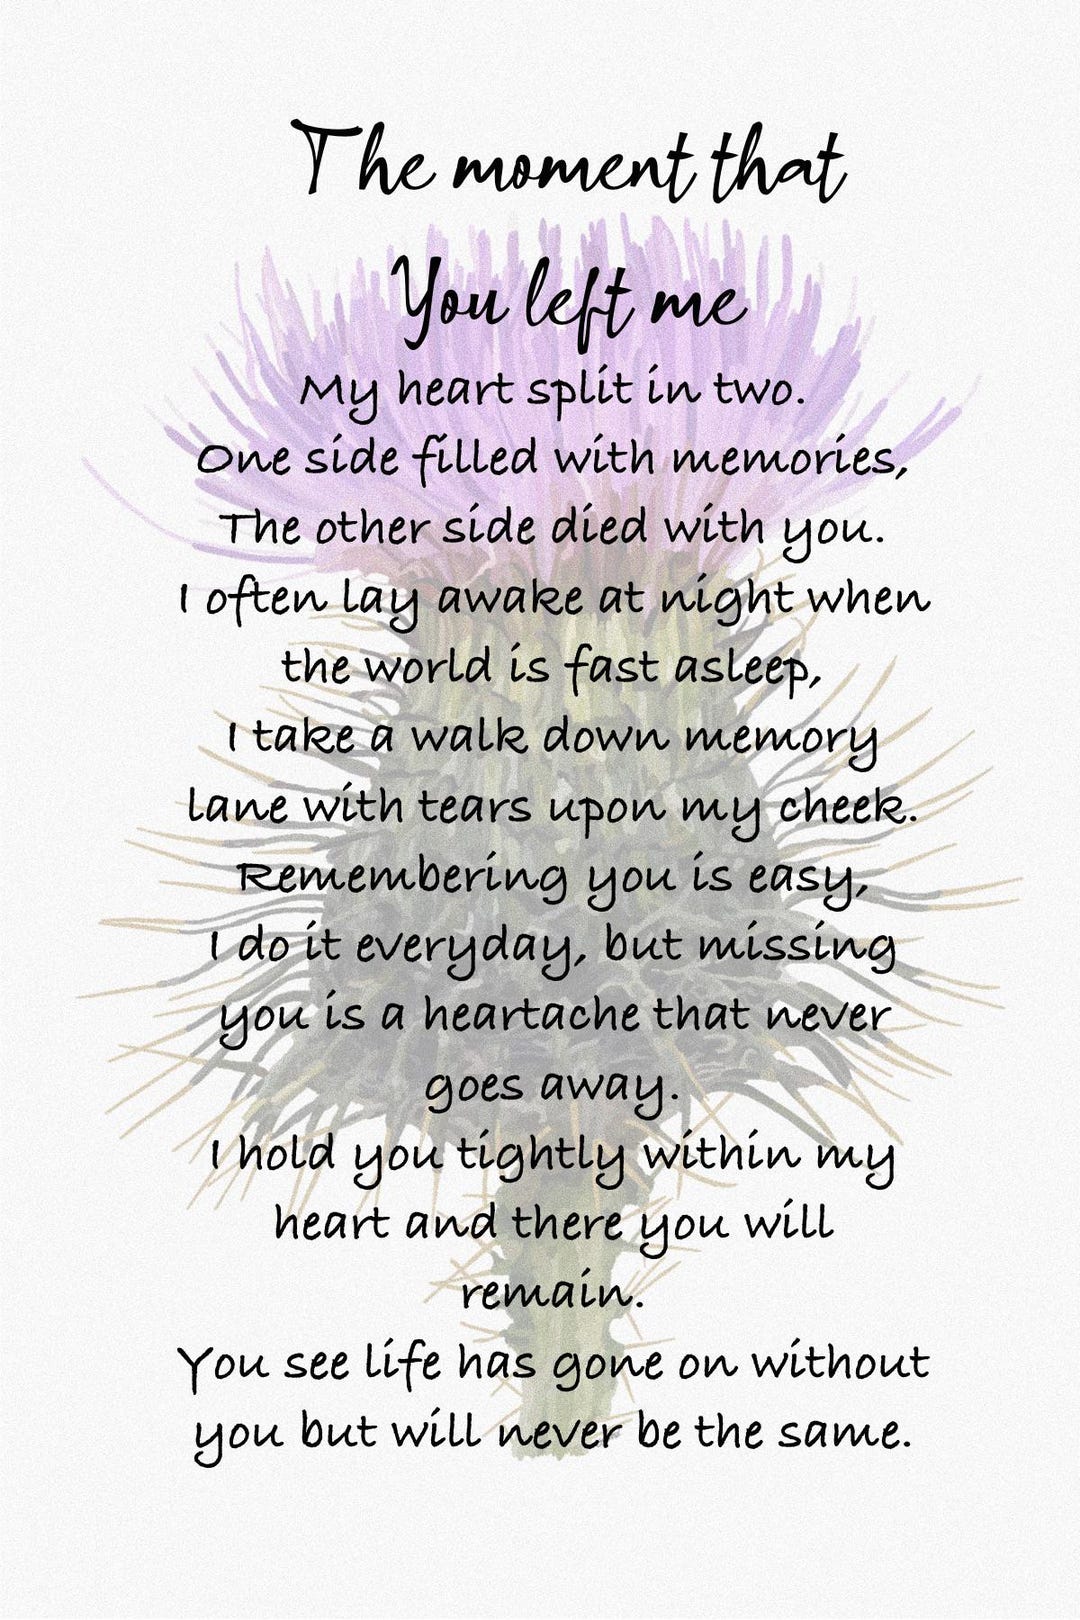 The moment that
You left me
My heart split in two.
One side filled with memories,
The other side died with you.
I often lay awake at night when
the world is fast asleep,
I take a walk down memory
lane with tears upon my cheek.
Remembering you is easy,
I do it everyday, but missing
you is a heartache that never
goes away.
I hold you tightly within my
heart and there you will
remain.
You see life has gone on without
you but will never be the same.